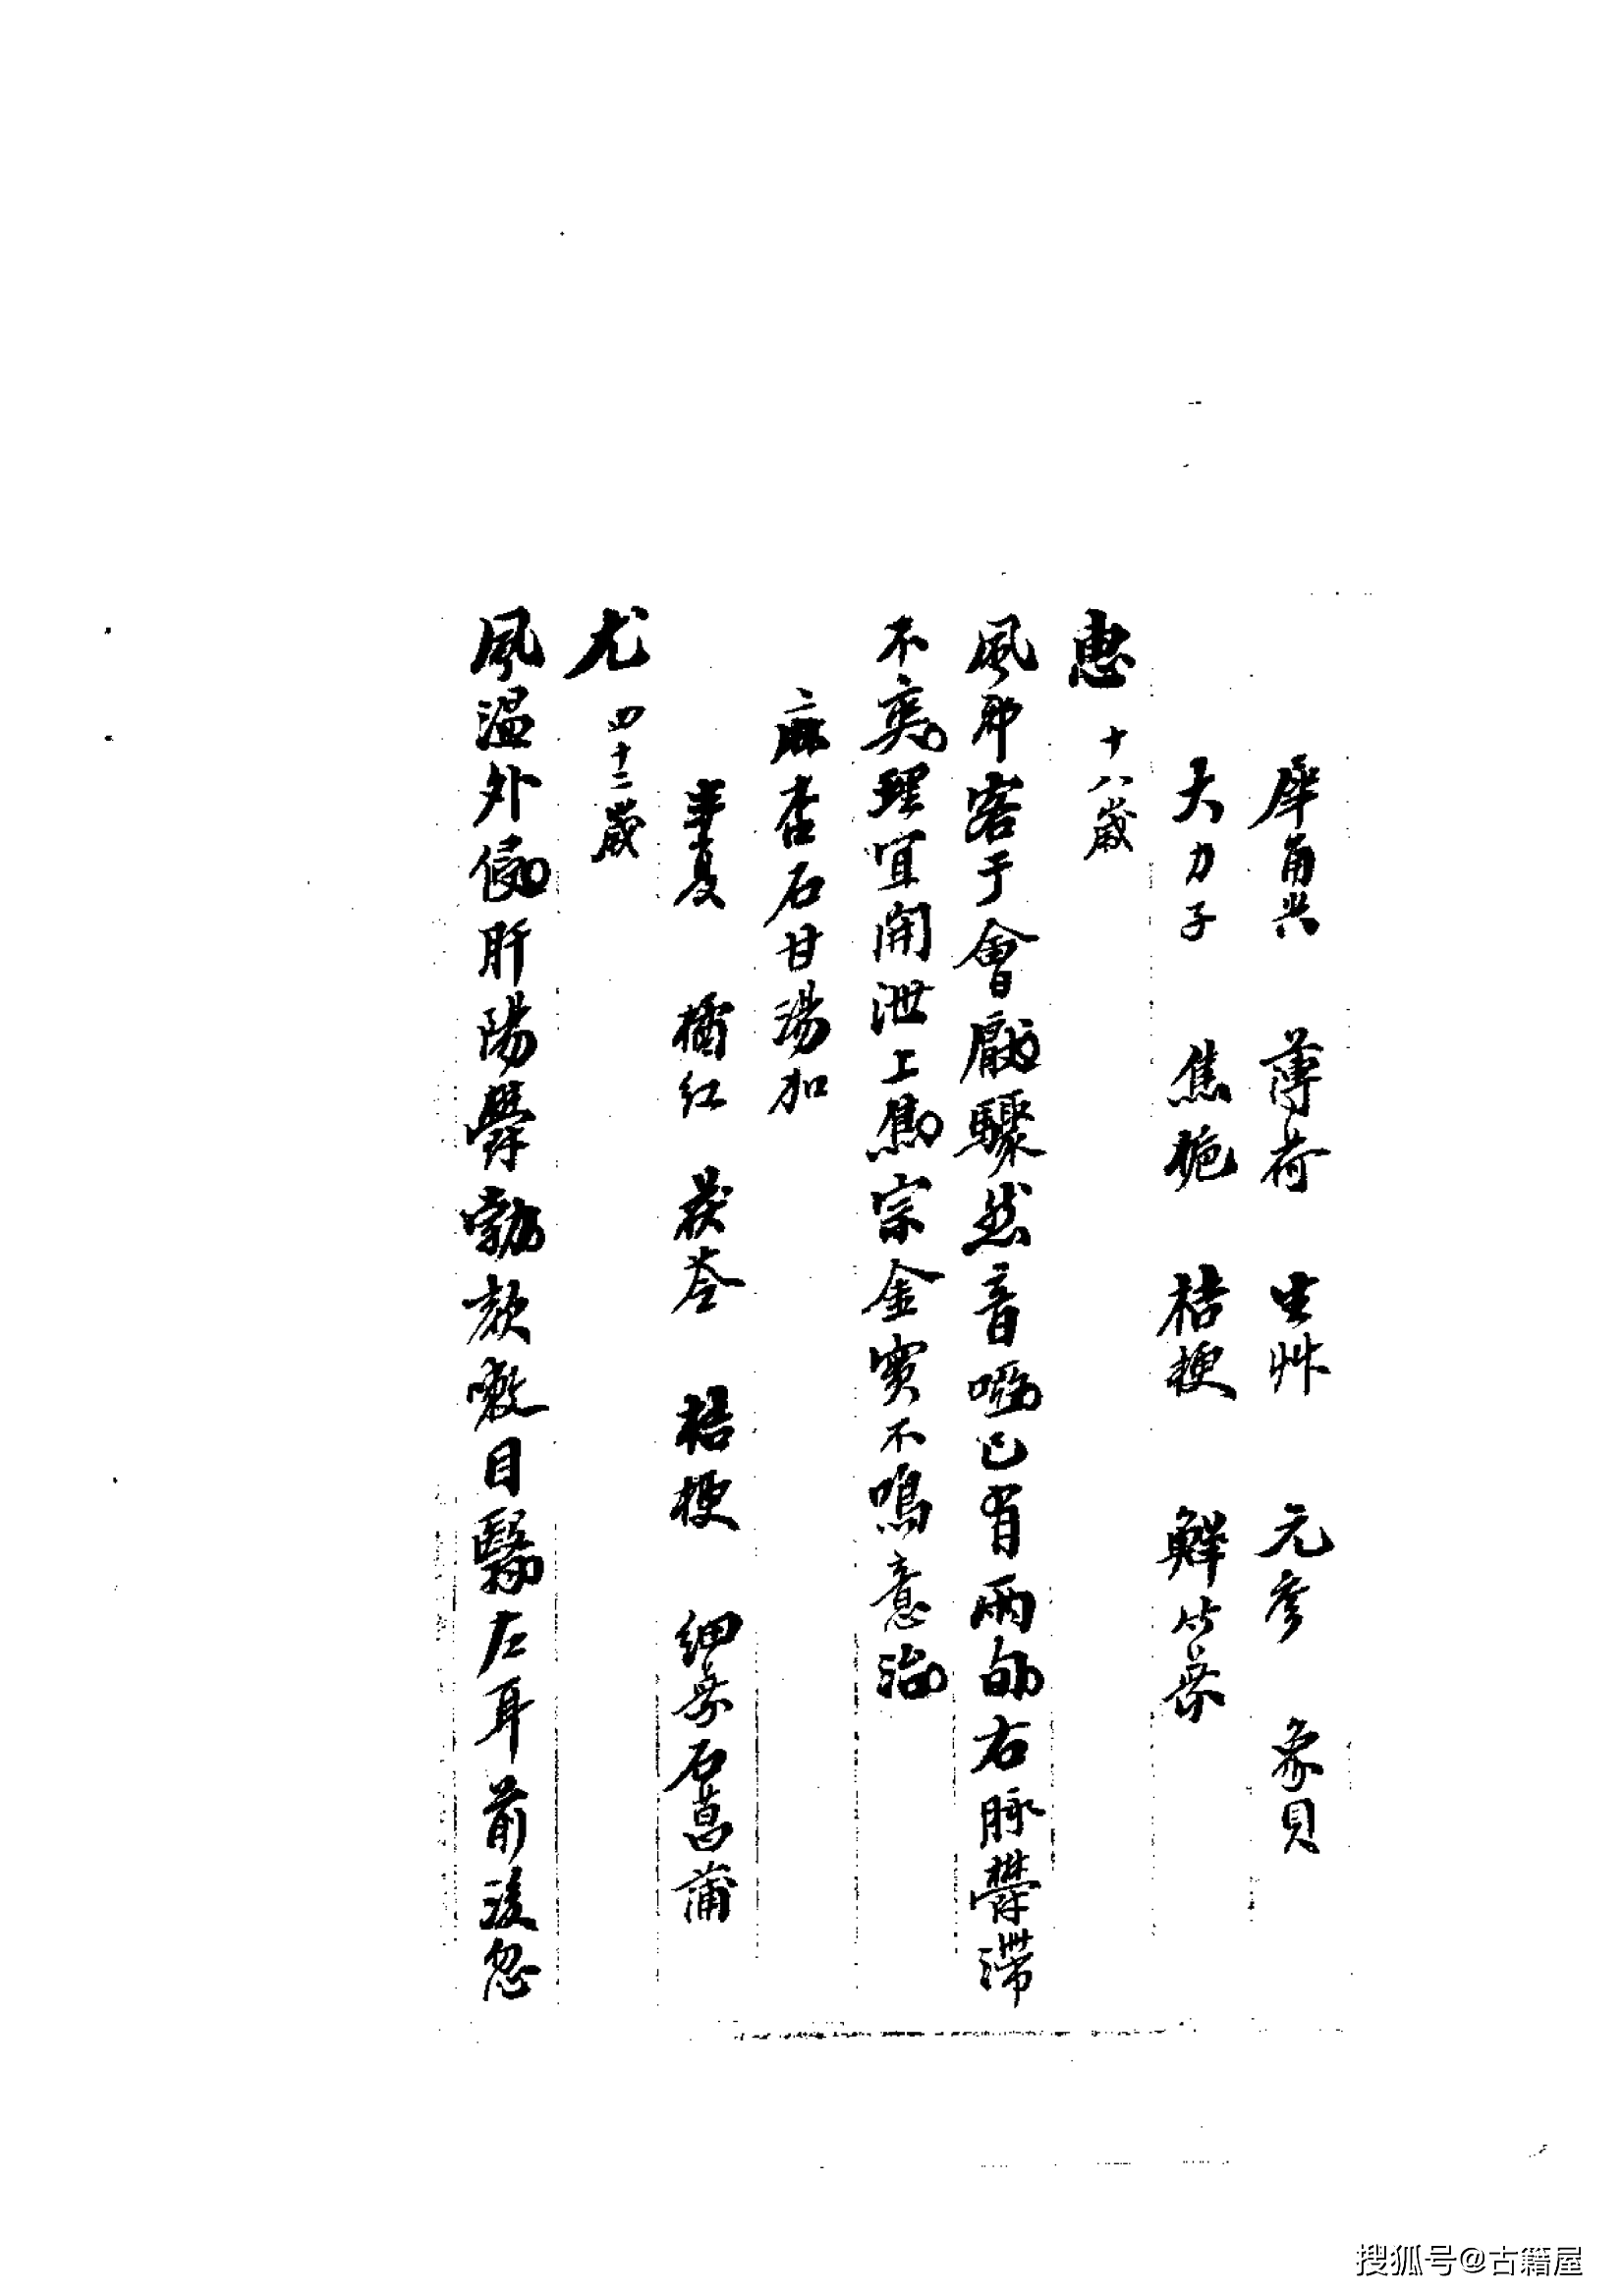 犀角尖 薄荷 生艸 元參 象貝
大力子 焦梔 桔梗 鮮竹葉
惠 十八歲
風邪客于會厭驟然音啞已有兩旬右脉欝滯
不爽理宜開泄上焦宗金實不鳴意治
麻杏石甘湯加
半夏 橘紅 茯苓 桔梗 細辛 石菖蒲
尤 四十二歲
風溫外侵肝陽欝勃欬嗽目翳左耳前後忽
搜狐号@古籍屋